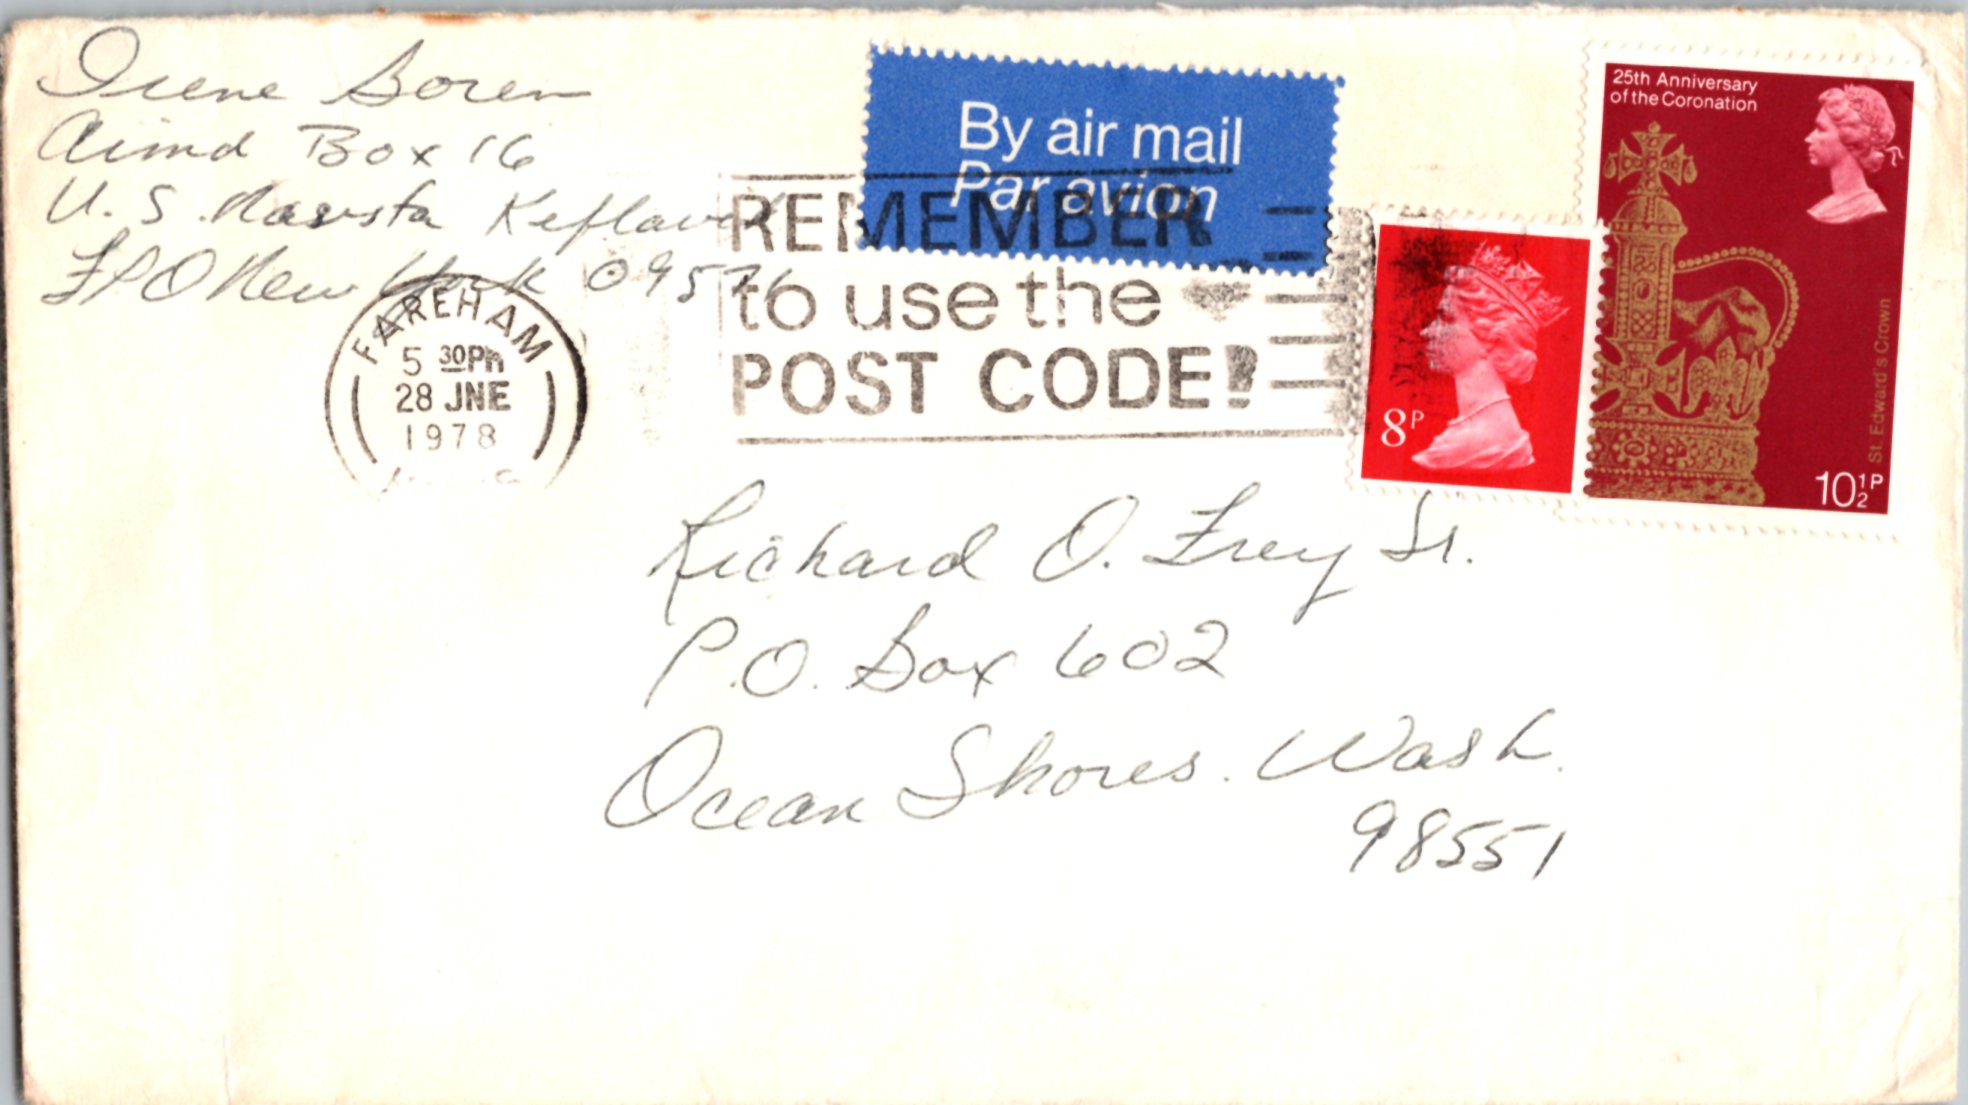 Irene Boren
Aimd Box 16
U.S. Navsta Keflavik
FPO New York 09571
By air mail
Par avion
25th Anniversary
of the Coronation
St. Edward's Crown
10½P
8P
FAREHAM
5 30PM
28 JNE
1978
REMEMBER
to use the
POST CODE!
Richard O. Frey Sr.
P.O. Box 602
Ocean Shores. Wash.
98551